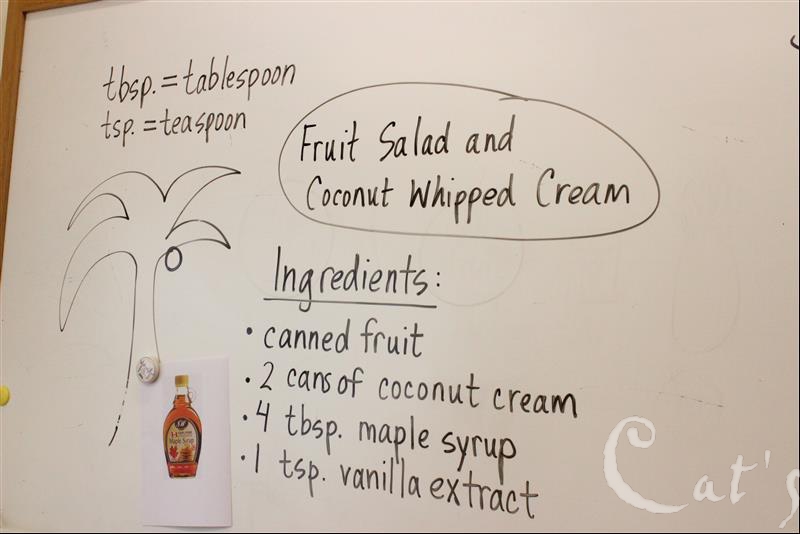 tbsp. = tablespoon
tsp. = teaspoon
Fruit Salad and
Coconut Whipped Cream
Ingredients:
• canned fruit
• 2 cans of coconut cream
• 4 tbsp. maple syrup
• 1 tsp. vanilla extract
Maple Syrup
Cat's